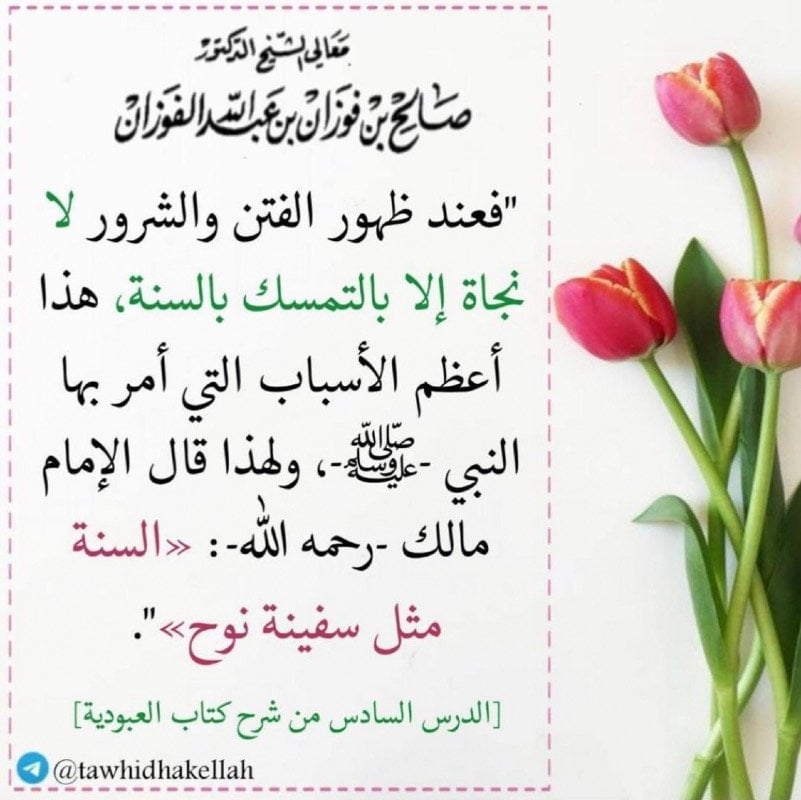 معالي الشيخ الدكتور
صالح بن فوزان بن عبد الله الفوزان
"فعند ظهور الفتن والشرور لا
نجاة إلا بالتمسك بالسنة، هذا
أعظم الأسباب التي أمر بها
النبي -ﷺ-، ولهذا قال الإمام
مالك -رحمه الله-: «السنة
مثل سفينة نوح»".
[الدرس السادس من شرح كتاب العبودية]
@tawhidhakellah